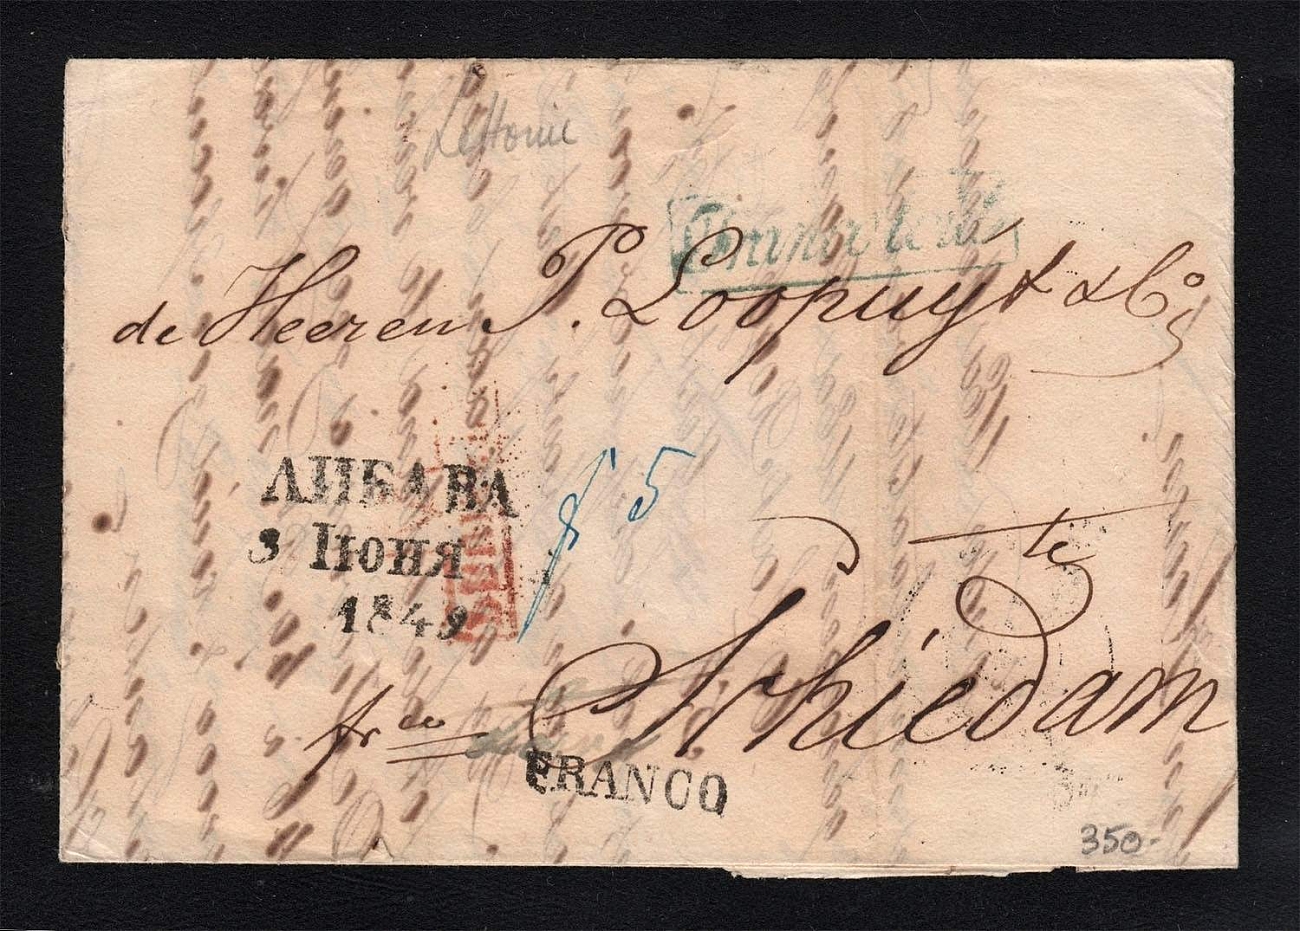 Lettonie
de Heeren P. Loopuyt & Co
ЛИБАВА
3 Июня
1849
f 5
te
Schiedam
frco
FRANCO
350-